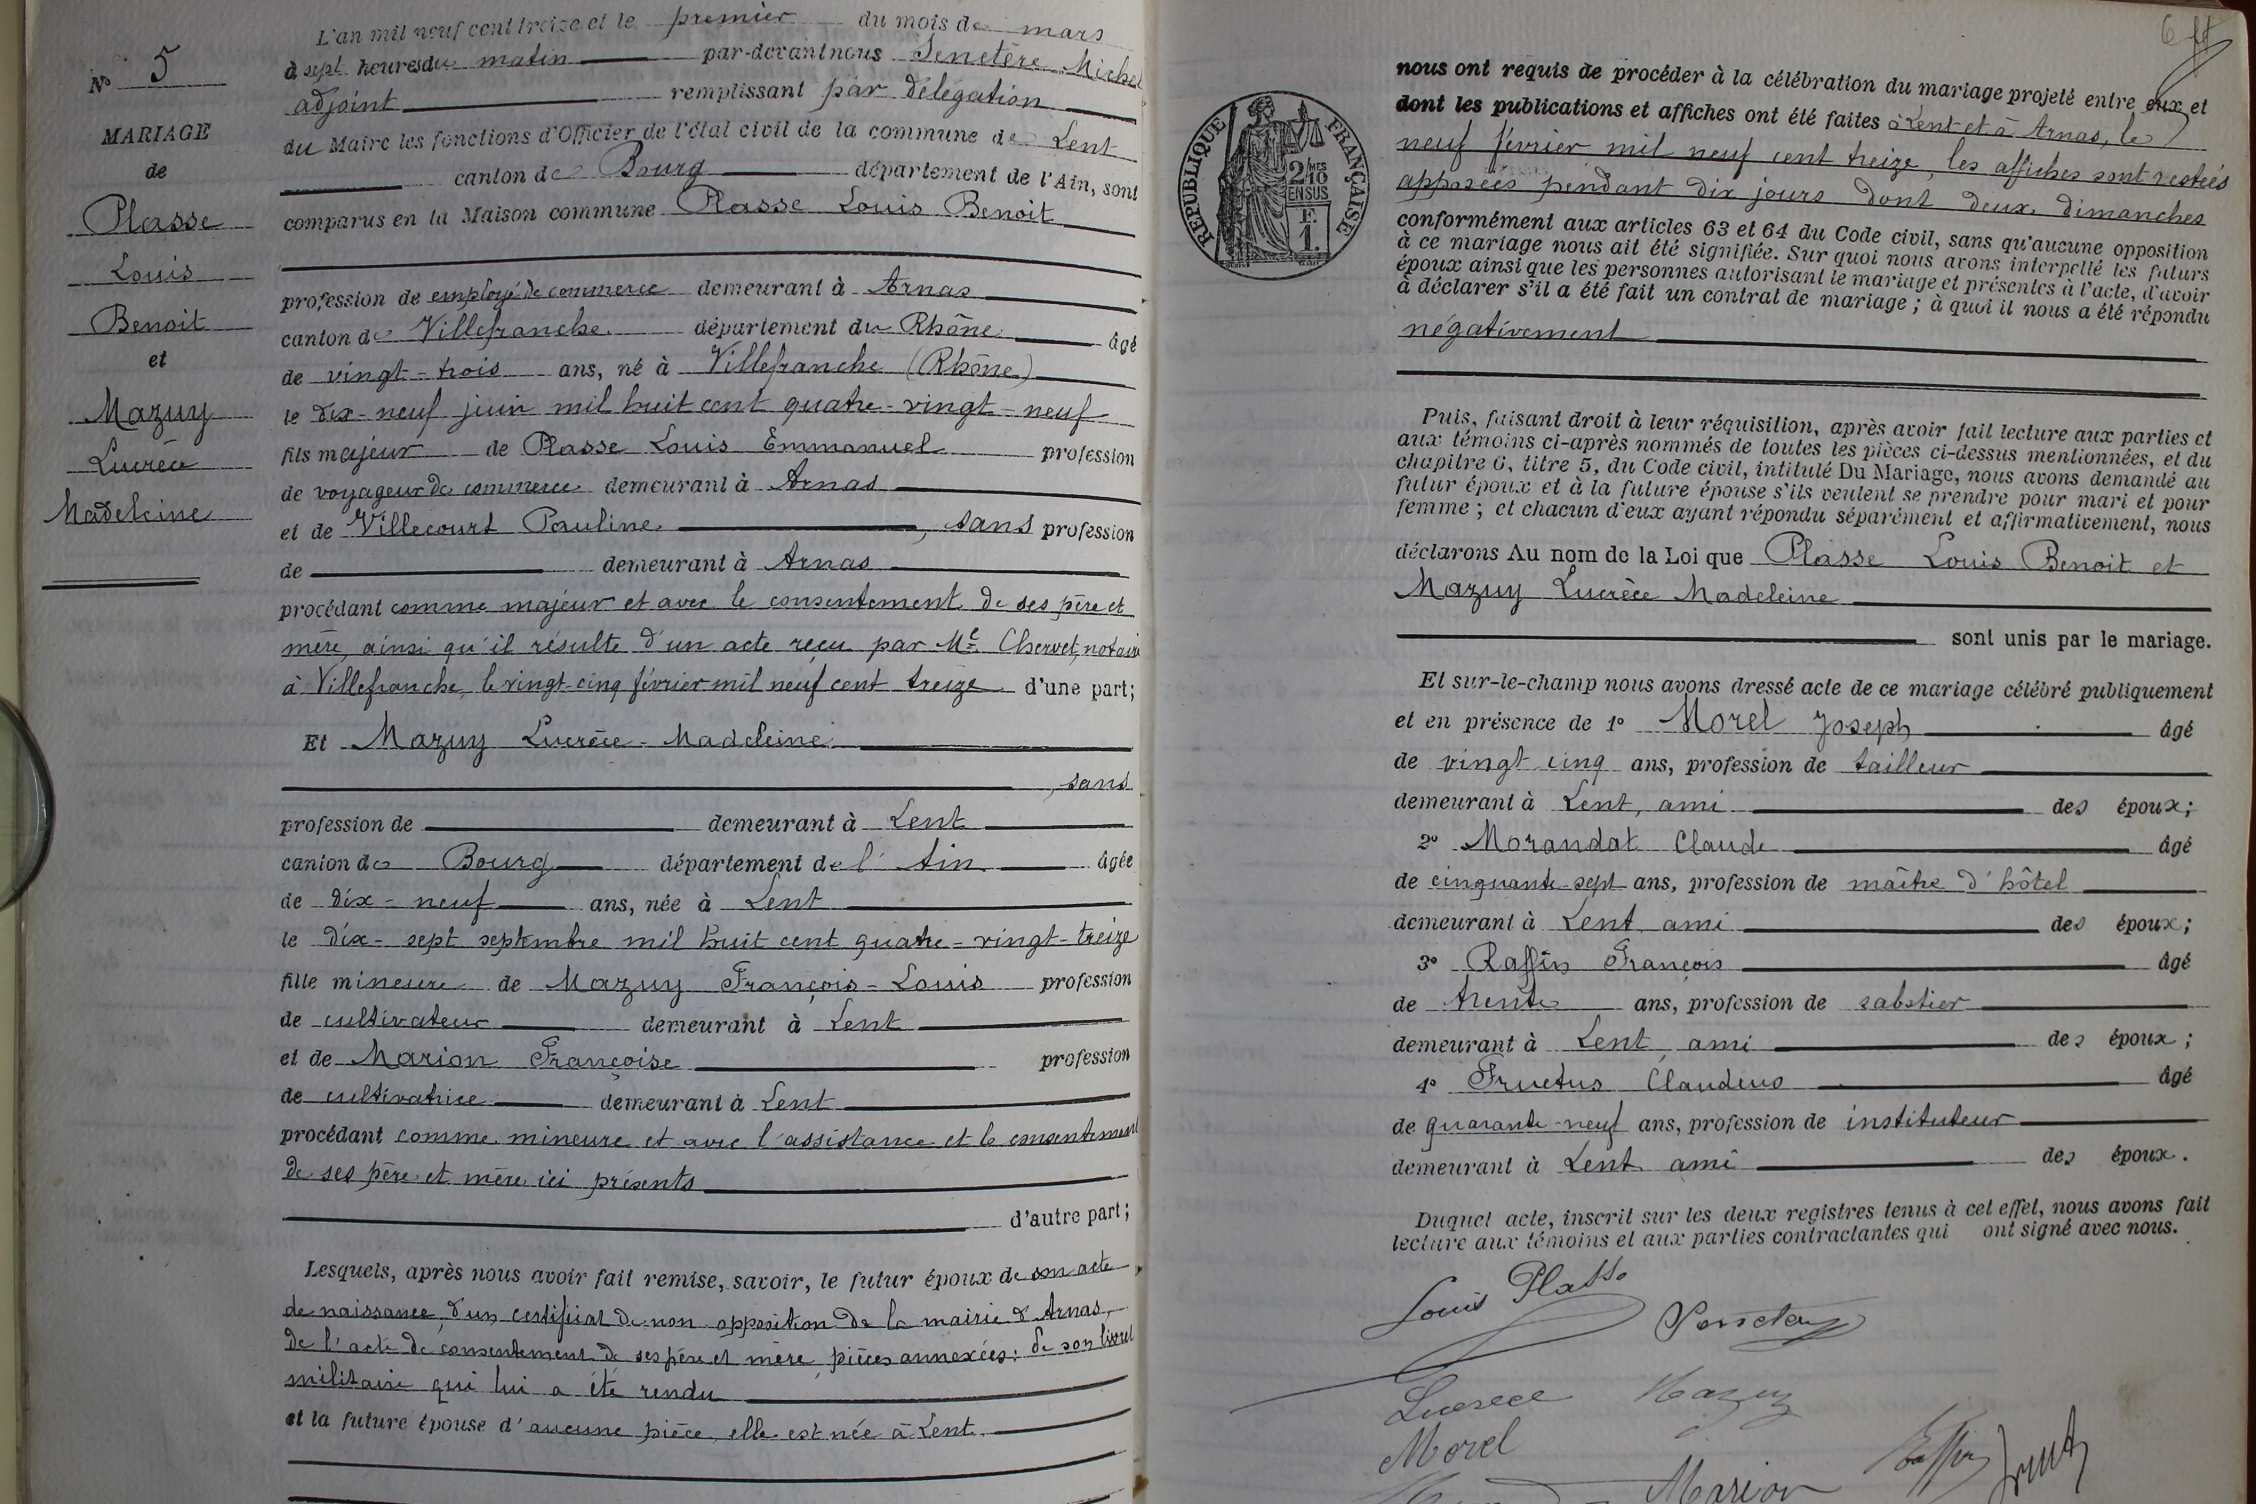 N° 5
MARIAGE
de
Plasse
Louis
Benoit
et
Mazuy
Lucrèce
Madeleine
L'an mil neuf cent treize et le premier du mois de mars
à sept heures du matin par-devant nous Senetère Michel
adjoint remplissant par délégation
du Maire les fonctions d'Officier de l'état civil de la commune de Lent
canton de Bourg département de l'Ain, sont
comparus en la Maison commune Plasse Louis Benoit
profession de employé de commerce demeurant à Arnas
canton de Villefranche département du Rhône âgé
de vingt-trois ans, né à Villefranche (Rhône)
le dix-neuf juin mil huit cent quatre-vingt-neuf
fils majeur de Plasse Louis Emmanuel profession
de voyageur de commerce demeurant à Arnas
et de Villecourt Pauline, sans profession
de demeurant à Arnas
procédant comme majeur et avec le consentement de ses père et
mère, ainsi qu'il résulte d'un acte reçu par Me Chervet, notaire
à Villefranche, le vingt-cinq février mil neuf cent treize d'une part;
Et Mazuy Lucrèce-Madeleine
, sans
profession de demeurant à Lent
canton de Bourg département de l'Ain âgée
de dix-neuf ans, née à Lent
le dix-sept septembre mil huit cent quatre-vingt-treize
fille mineure de Mazuy François-Louis profession
de cultivateur demeurant à Lent
et de Marion Françoise profession
de cultivatrice demeurant à Lent
procédant comme mineure et avec l'assistance et le consentement
de ses père et mère ici présents
d'autre part;
Lesquels, après nous avoir fait remise, savoir, le futur époux de son acte
de naissance, d'un certificat de non opposition de la mairie d'Arnas,
de l'acte de consentement de ses père et mère, pièces annexées: de son livret
militaire qui lui a été rendu
et la future épouse d'aucune pièce, elle est née à Lent.
6
RÉPUBLIQUE FRANÇAISE
2/10 EN SUS
F.
1.
nous ont requis de procéder à la célébration du mariage projeté entre eux et
dont les publications et affiches ont été faites à Lent et à Arnas, le
neuf février mil neuf cent treize, les affiches sont restées
apposées pendant dix jours dont deux dimanches
conformément aux articles 63 et 64 du Code civil, sans qu'aucune opposition
à ce mariage nous ait été signifiée. Sur quoi nous avons interpellé les futurs
époux ainsi que les personnes autorisant le mariage et présentes à l'acte, d'avoir
à déclarer s'il a été fait un contrat de mariage; à quoi il nous a été répondu
négativement
Puis, faisant droit à leur réquisition, après avoir fait lecture aux parties et
aux témoins ci-après nommés de toutes les pièces ci-dessus mentionnées, et du
chapitre 6, titre 5, du Code civil, intitulé Du Mariage, nous avons demandé au
futur époux et à la future épouse s'ils veulent se prendre pour mari et pour
femme; et chacun d'eux ayant répondu séparément et affirmativement, nous
déclarons Au nom de la Loi que Plasse Louis Benoit et
Mazuy Lucrèce Madeleine
sont unis par le mariage.
Et sur-le-champ nous avons dressé acte de ce mariage célébré publiquement
et en présence de 1° Morel Joseph âgé
de vingt cinq ans, profession de tailleur
demeurant à Lent, ami des époux;
2° Morandat Claude âgé
de cinquante-sept ans, profession de maître d'hôtel
demeurant à Lent ami des époux;
3° Raffin François âgé
de trente ans, profession de sabotier
demeurant à Lent, ami des époux;
4° Fructus Claudius âgé
de quarante-neuf ans, profession de instituteur
demeurant à Lent ami des époux.
Duquel acte, inscrit sur les deux registres tenus à cet effet, nous avons fait
lecture aux témoins et aux parties contractantes qui ont signé avec nous.
Louis Plasse
Senetère
Lucrèce Mazuy
Morel
Marion Raffin